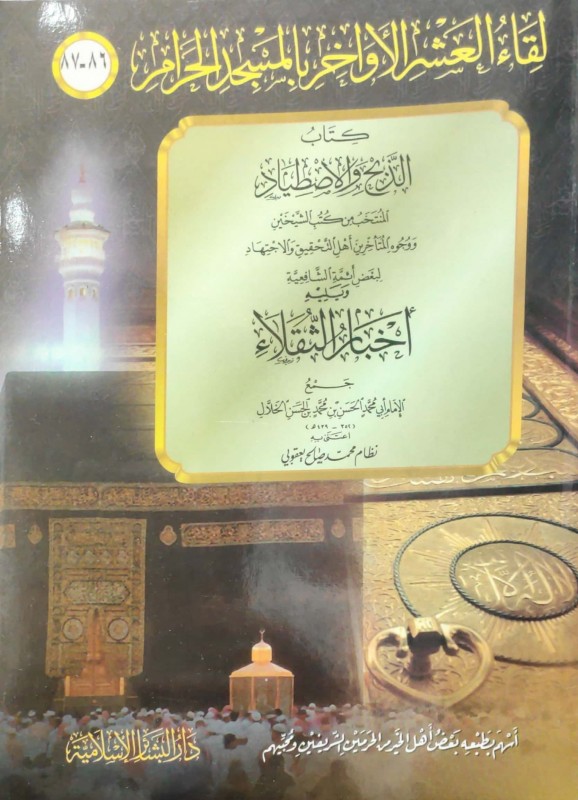 لِقَاءُ العَشْرِ الأَوَاخِرِ بِالمَسْجِدِ الحَرَامِ
٨٦-٨٧
كِتَابُ
الذَّبَائِحِ وَالاصْطِيَادِ
المُنتَخَبُ مِنْ كُتُبِ الشَّيْخَيْنِ
وَوُجُوهِ المُتَأَخِّرِينَ أَهْلِ التَّحْقِيقِ وَالاجْتِهَادِ
لِبَعْضِ أَئِمَّةِ الشَّافِعِيَّةِ
وَيَلِيْهِ
أَخْبَارُ الثُّقَلَاءِ
جَمْعُ
الإِمَامِ أَبِي مُحَمَّد الحَسَن بْنِ مُحَمَّد بْنِ الحَسَن الخَلَّال
(٣٥٢ - ٤٣٩ هـ)
اعْتَنَى بِهِ
نظام محمد صالح يعقوبي
أَسْهَمَ بِطَبْعِهِ بَعْضُ أَهْلِ الخَيْرِ مِنَ الحَرَمَيْنِ الشَّرِيفَيْنِ وَمُحِبِّيهِم
دَارُ البَشَائِرِ الإِسْلَامِيَّة